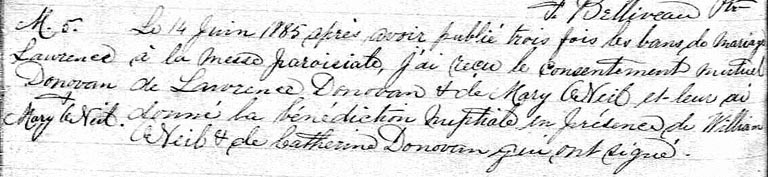 F. Belliveau Ptr
M 5. Le 14 Juin 1885 après avoir publié trois fois les bans de mariage
Lawrence à la messe paroissiale, j'ai reçu le consentement mutuel
Donovan de Lawrence Donovan & de Mary O'Neil et leur ai
& Mary O'Neil. donné la bénédiction nuptiale en présence de William
O'Neil & de Catherine Donovan qui ont signé.